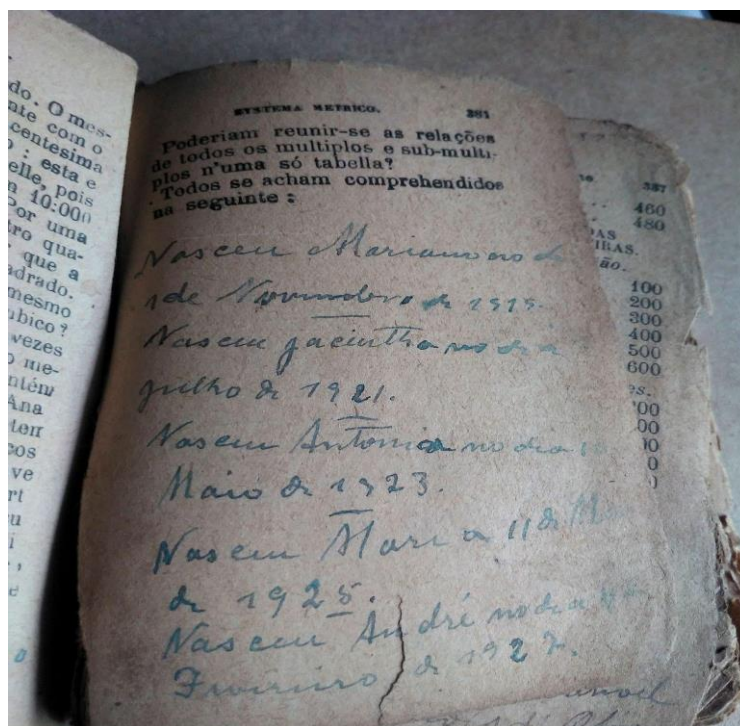 do. O mes-
nte com o
centesima
: esta e
elle, pois
10:000
Por uma
tro qua-
que a
adrado.
mesmo
ubico?
vezes
o me-
ntém
Ana
tem
cos
ve
rt
SYSTEMA METRICO. 381
Poderiam reunir-se as relações
de todos os multiplos e sub-multi-
plos n'uma só tabella?
Todos se acham comprehendidos
na seguinte:
Nasceu Marianno no d
1 de Novembro de 1919.
Nasceu Jacintha no dia
Julho de 1921.
Nasceu Antonia no dia
Maio de 1923.
Nasceu Maria 11 de
de 1925.
Nasceu André no dia
Fevereiro de 1927.
387
460
480
AS
IRAS.
ão.
100
200
300
400
500
600
es.
00
00
00
0
0